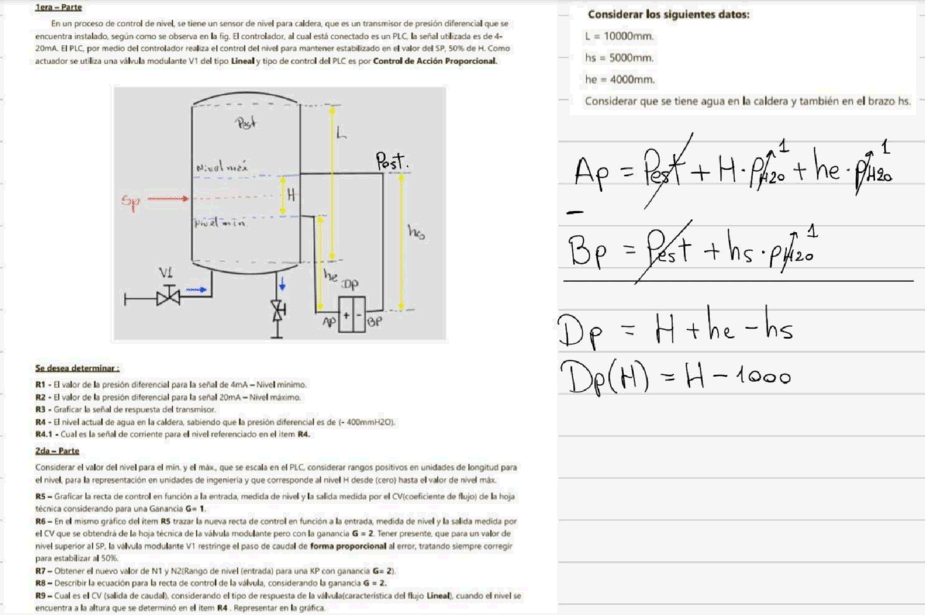 1era – Parte
En un proceso de control de nivel, se tiene un sensor de nivel para caldera, que es un transmisor de presión diferencial que se
encuentra instalado, según como se observa en la fig. El controlador, al cual está conectado es un PLC, la señal utilizada es de 4-
20mA. El PLC, por medio del controlador realiza el control del nivel para mantener estabilizado en el valor del SP, 50% de H. Como
actuador se utiliza una válvula modulante V1 del tipo Lineal y tipo de control del PLC es por Control de Acción Proporcional.
Pest
L
Nivel max
Pest.
Sp
H
Nivel min
hs
V1
he
DP
AP + - BP
Se desea determinar :
R1 - El valor de la presión diferencial para la señal de 4mA – Nivel mínimo.
R2 - El valor de la presión diferencial para la señal 20mA – Nivel máximo.
R3 - Graficar la señal de respuesta del transmisor.
R4 - El nivel actual de agua en la caldera, sabiendo que la presión diferencial es de (- 400mmH2O).
R4.1 - Cual es la señal de corriente para el nivel referenciado en el ítem R4.
2da – Parte
Considerar el valor del nivel para el mín. y el máx., que se escala en el PLC, considerar rangos positivos en unidades de longitud para
el nivel, para la representación en unidades de ingeniería y que corresponde al nivel H desde (cero) hasta el valor de nivel máx.
R5 – Graficar la recta de control en función a la entrada, medida de nivel y la salida medida por el CV(coeficiente de flujo) de la hoja
técnica considerando para una Ganancia G= 1.
R6 – En el mismo gráfico del ítem R5 trazar la nueva recta de control en función a la entrada, medida de nivel y la salida medida por
el CV que se obtendrá de la hoja técnica de la válvula modulante pero con la ganancia G = 2. Tener presente, que para un valor de
nivel superior al SP, la válvula modulante V1 restringe el paso de caudal de forma proporcional al error, tratando siempre corregir
para estabilizar al 50%.
R7 – Obtener el nuevo valor de N1 y N2(Rango de nivel (entrada) para una KP con ganancia G= 2).
R8 – Describir la ecuación para la recta de control de la válvula, considerando la ganancia G = 2.
R9 – Cual es el CV (salida de caudal), considerando el tipo de respuesta de la válvula(característica del flujo Lineal), cuando el nivel se
encuentra a la altura que se determinó en el ítem R4 . Representar en la gráfica.
Considerar los siguientes datos:
L = 10000mm.
hs = 5000mm.
he = 4000mm.
Considerar que se tiene agua en la caldera y también en el brazo hs.
Ap = Pest + H·ρH20 1 + he·ρH20 1
–
Bp = Pest + hs·ρH20 1
Dp = H + he – hs
Dp(H) = H – 1000